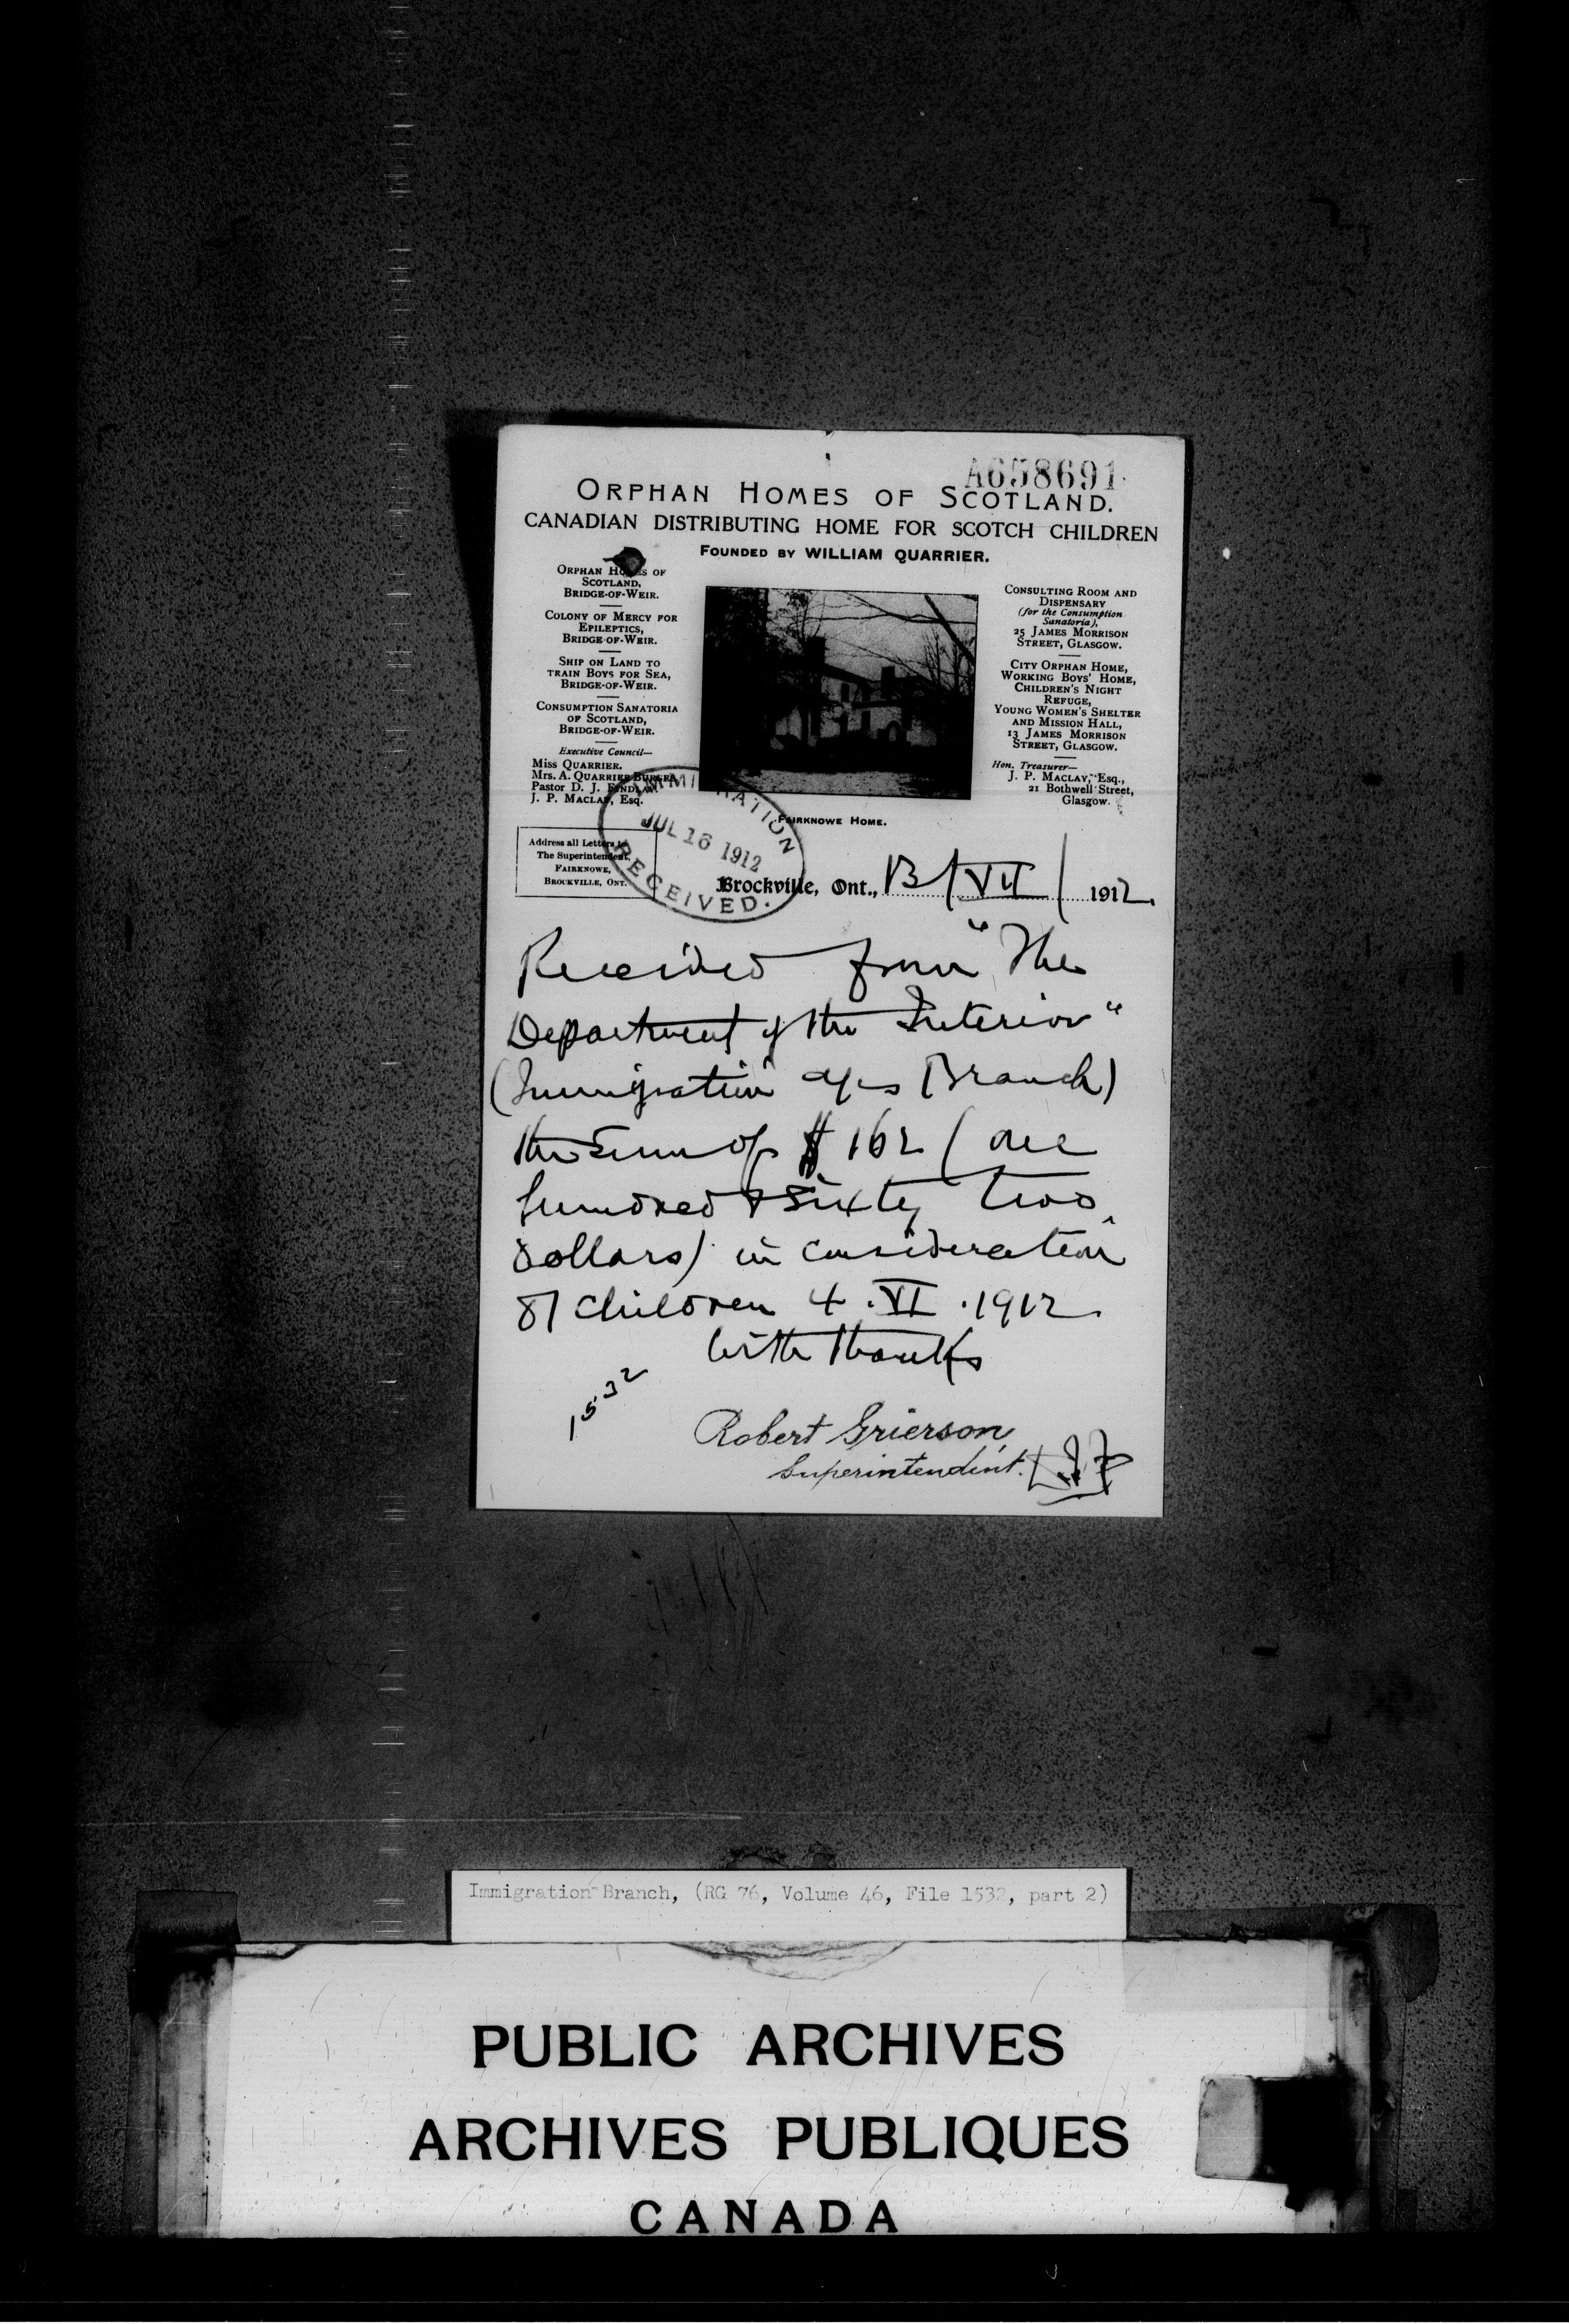 A658691
ORPHAN HOMES OF SCOTLAND.
CANADIAN DISTRIBUTING HOME FOR SCOTCH CHILDREN
FOUNDED BY WILLIAM QUARRIER.
ORPHAN HOMES OF
SCOTLAND,
BRIDGE-OF-WEIR.
COLONY OF MERCY FOR
EPILEPTICS,
BRIDGE-OF-WEIR.
SHIP ON LAND TO
TRAIN BOYS FOR SEA,
BRIDGE-OF-WEIR.
CONSUMPTION SANATORIA
OF SCOTLAND,
BRIDGE-OF-WEIR.
Executive Council—
Miss QUARRIER.
Mrs. A. QUARRIER BURGES
Pastor D. J. FINDLAY
J. P. MACLAY, Esq.
CONSULTING ROOM AND
DISPENSARY
(for the Consumption
Sanatoria),
25 JAMES MORRISON
STREET, GLASGOW.
CITY ORPHAN HOME,
WORKING BOYS' HOME,
CHILDREN'S NIGHT
REFUGE,
YOUNG WOMEN'S SHELTER
AND MISSION HALL,
13 JAMES MORRISON
STREET, GLASGOW.
Hon. Treasurer—
J. P. MACLAY, Esq.,
21 Bothwell Street,
Glasgow.
FAIRKNOWE HOME.
IMMIGRATION
JUL 16 1912
RECEIVED.
Address all Letters to
The Superintendent,
FAIRKNOWE,
BROCKVILLE, ONT.
Brockville, Ont., 13/VII/1912.
Received from "The
Department of the Interior"
(Immigration Branch)
the Sum of $162 (one
hundred & sixty two
dollars) in consideration
of children 4.VI.1912.
With thanks
1532
Robert Grierson,
Superintendent.
Immigration Branch, (RG 76, Volume 46, File 1532, part 2)
PUBLIC ARCHIVES
ARCHIVES PUBLIQUES
CANADA